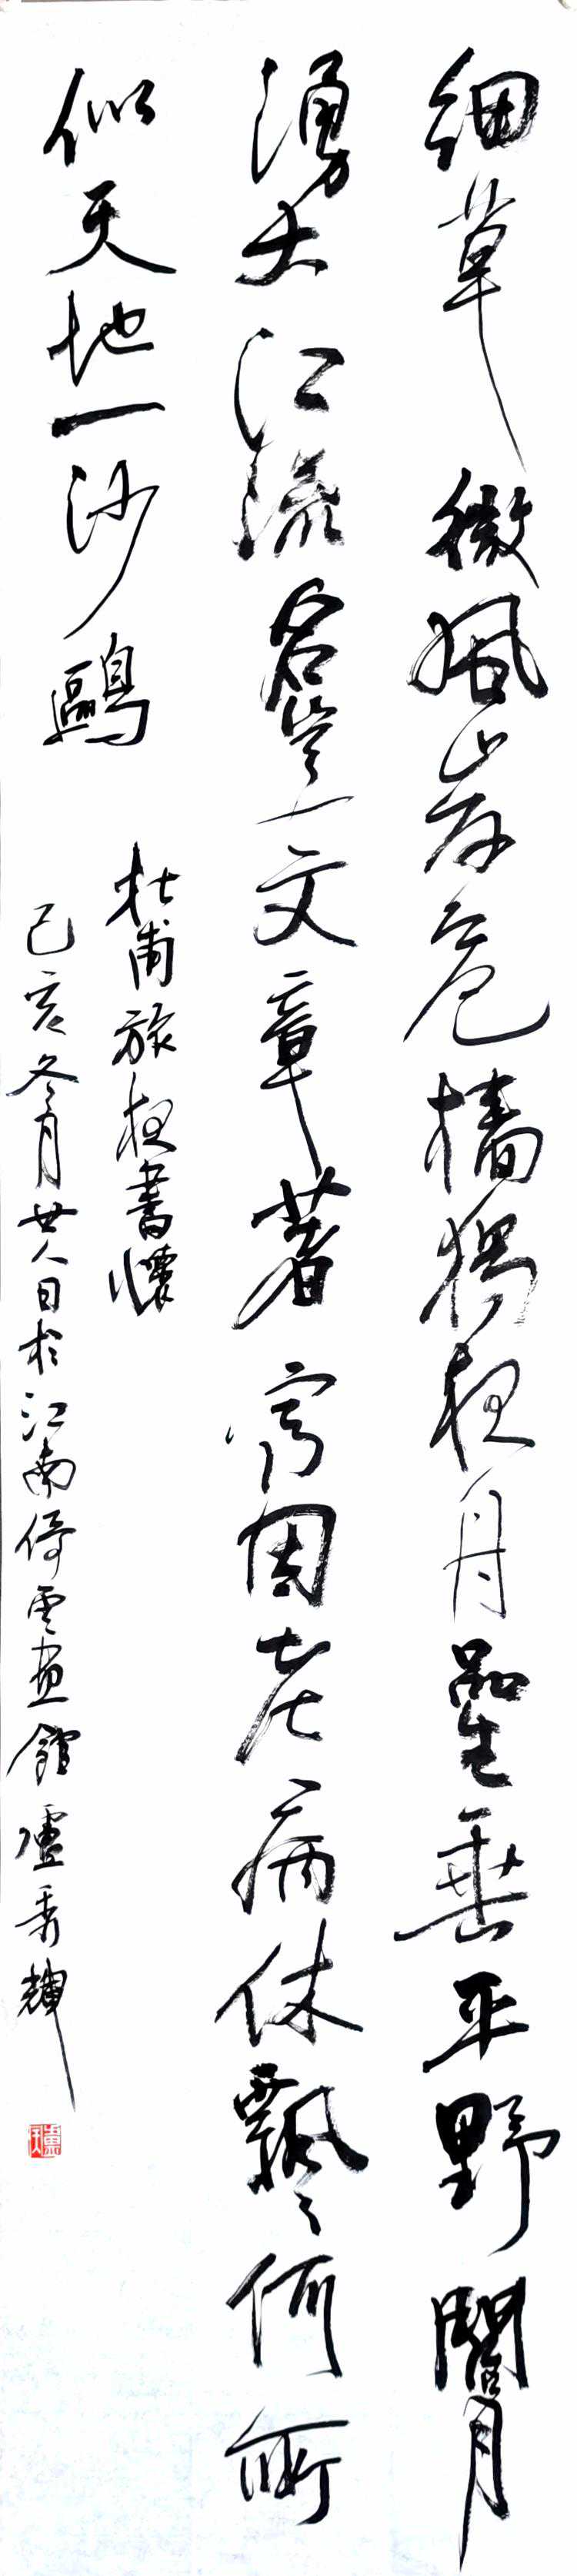 細草微風岸危檣獨夜舟星垂平野闊月
湧大江流名豈文章著官因老病休飄々何所
似天地一沙鷗
杜甫旅夜書懷
己亥冬月廿八日於江南倚雲畫館盧秀輝